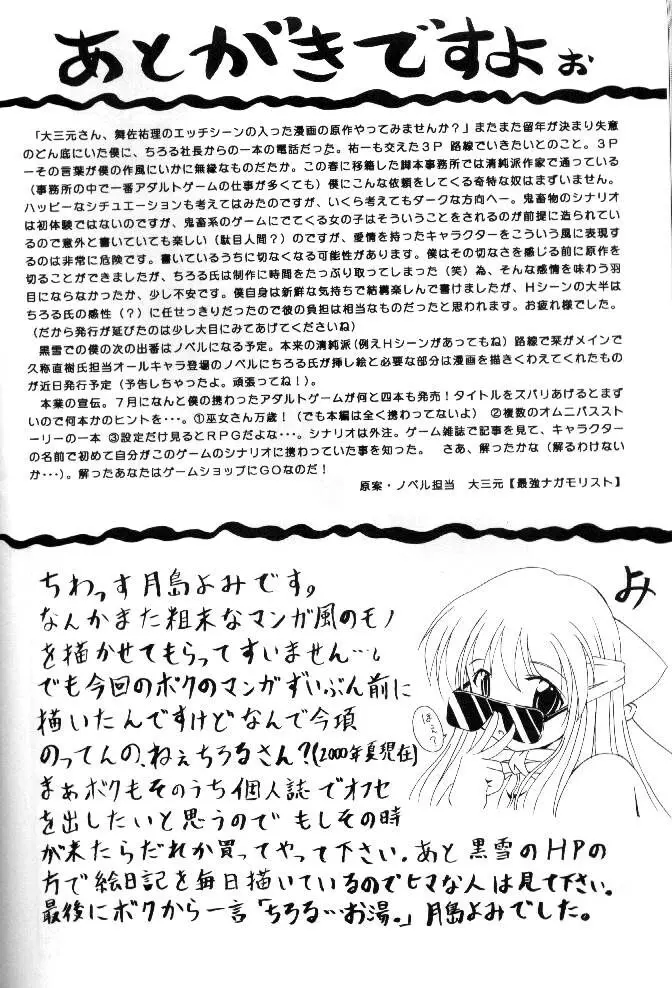 あとがきですよぉ
「大三元さん、舞佐祐理のエッチシーンの入った漫画の原作やってみませんか?」またまた留年が決まり失意
のどん底にいた僕に、ちろる社長からの一本の電話だった。祐一も交えた3P 路線でいきたいとのこと。3P
ーその言葉が僕の作風にいかに無縁なものだたか。この春に移籍した脚本事務所では清純派作家で通っている
(事務所の中で一番アダルトゲームの仕事が多くても)僕にこんな依頼をしてくる奇特な奴はまずいません。
ハッピーなシチュエーションも考えてはみたのですが、いくら考えてもダークな方向へー。鬼畜物のシナリオ
は初体験ではないのですが、鬼畜系のゲームにでてくる女の子はそういうことをされるのが前提に造られてい
るので意外と書いていても楽しい(駄目人間?)のですが、愛情を持ったキャラクターをこういう風に表現す
るのは非常に危険です。書いているうちに切なくなる可能性があります。僕はその切なさを感じる前に原作を
切ることができましたが、ちろる氏は制作に時間をたっぷり取ってしまった(笑)為、そんな感情を味わう羽
目にならなかったか、少し不安です。僕自身は新鮮な気持ちで結構楽しんで書けましたが、Hシーンの大半は
ちろる氏の感性(?)に任せっきりだったので彼の負担は相当なものだったと思われます。お疲れ様でした。
(だから発行が延びたのは少し大目にみてあげてくださいね)
黒雪での僕の次の出番はノベルになる予定。本来の清純派(例えHシーンがあってもね)路線で栞がメインで
久称直樹氏担当オールキャラ登場のノベルにちろる氏が挿し絵と必要な部分は漫画を描きくわえてくれたもの
が近日発行予定(予告しちゃったよ。頑張ってね!)。
本業の宣伝。7月になんと僕の携わったアダルトゲームが何と四本も発売!タイトルをズバリあげるとまず
いので何本かのヒントを・・・。①巫女さん万歳!(でも本編は全く携わってないよ) ②複数のオムニバススト
ーリーの一本 ③設定だけ見るとRPGだよな・・・。シナリオは外注。ゲーム雑誌で記事を見て、キャラクター
の名前で初めて自分がこのゲームのシナリオに携わっていた事を知った。 さあ、解ったかな(解るわけない
か・・・)。解ったあなたはゲームショップにGOなのだ!
原案・ノベル担当 大三元【最強ナガモリスト】
ちわっす月島よみです。
なんかまた粗末なマンガ風のモノ
を描かせてもらってすいません…。
でも今回のボクのマンガずいぶん前に
描いたんですけどなんで今頃
のってんの、ねぇちろるさん?(2000年夏現在)
まぁボクもそのうち個人誌でオフセ
を出したいと思うので もしその時
が来たらだれか買ってやって下さい。あと 黒雪のHPの
方で絵日記を毎日描いているのでヒマな人は見て下さい。
最後にボクから一言「ちろる…お湯。」月島よみでした。
よみ